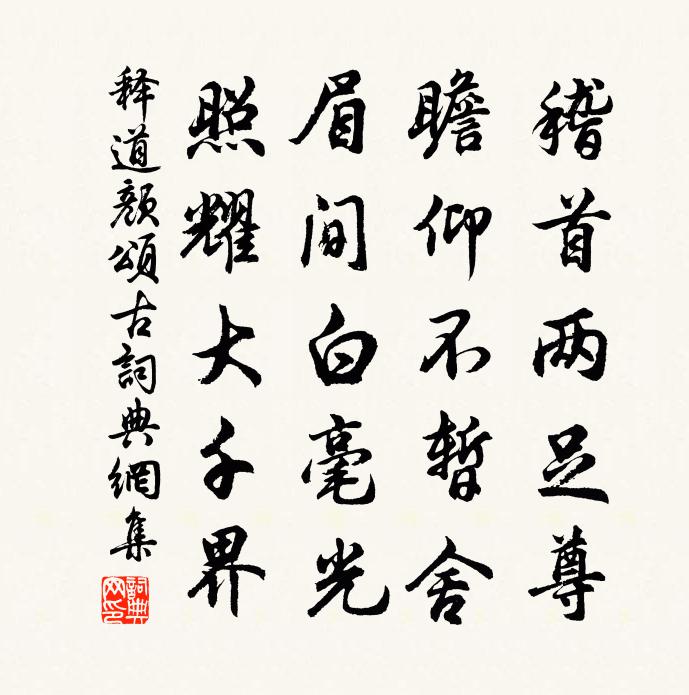 稽首两足尊
瞻仰不暂舍
眉间白毫光
照耀大千界
释道颜颂古詞典網集
詞典网印